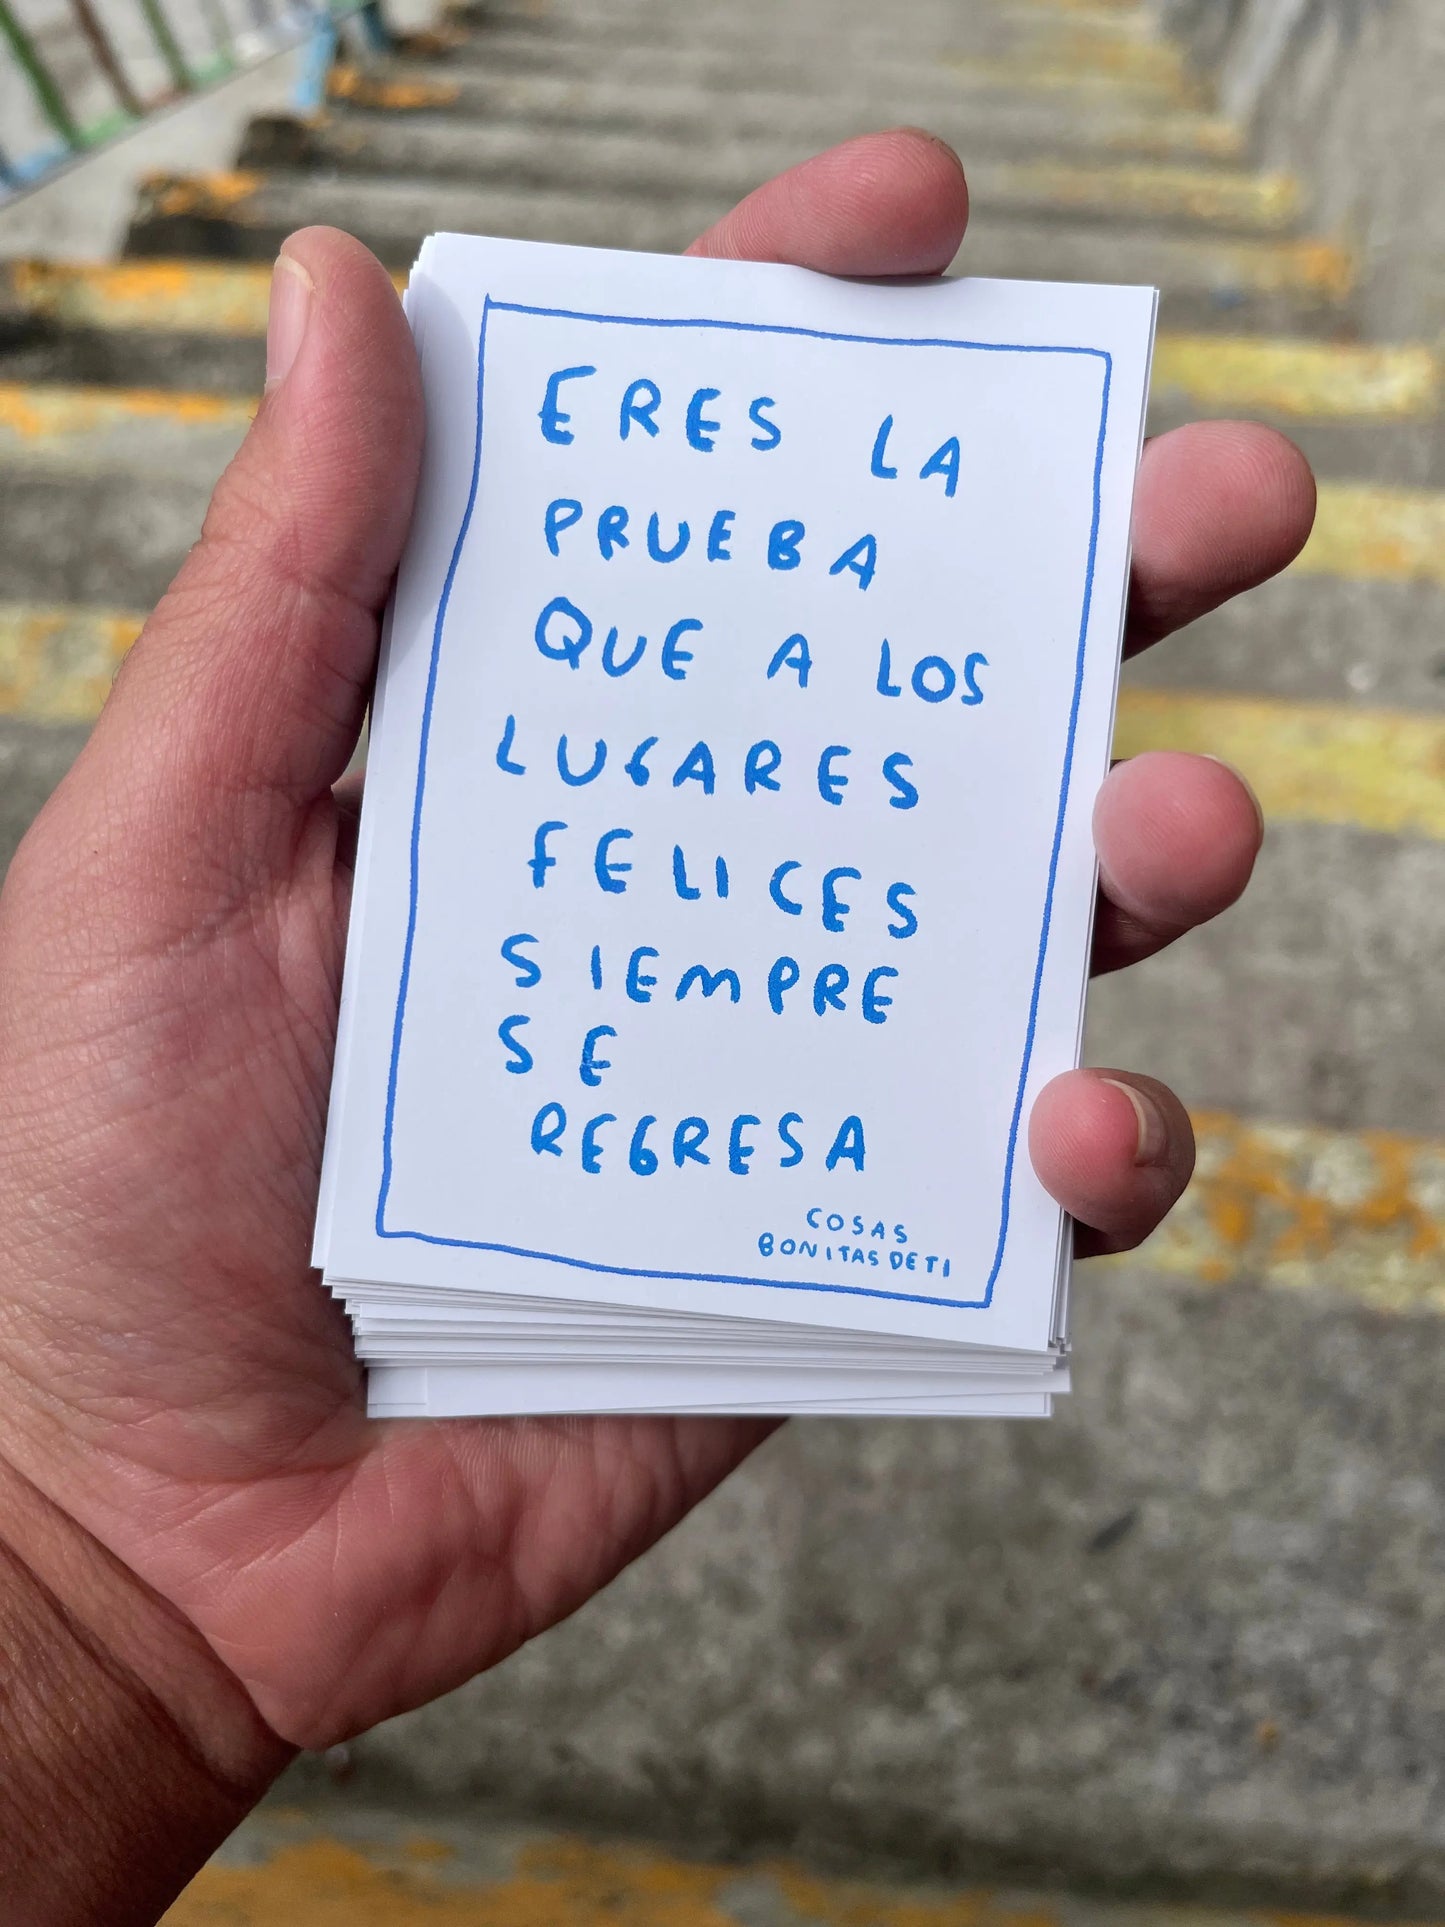 ERES LA
PRUEBA
QUE A LOS
LUGARES
FELICES
SIEMPRE
SE
REGRESA
COSAS
BONITAS DE TI